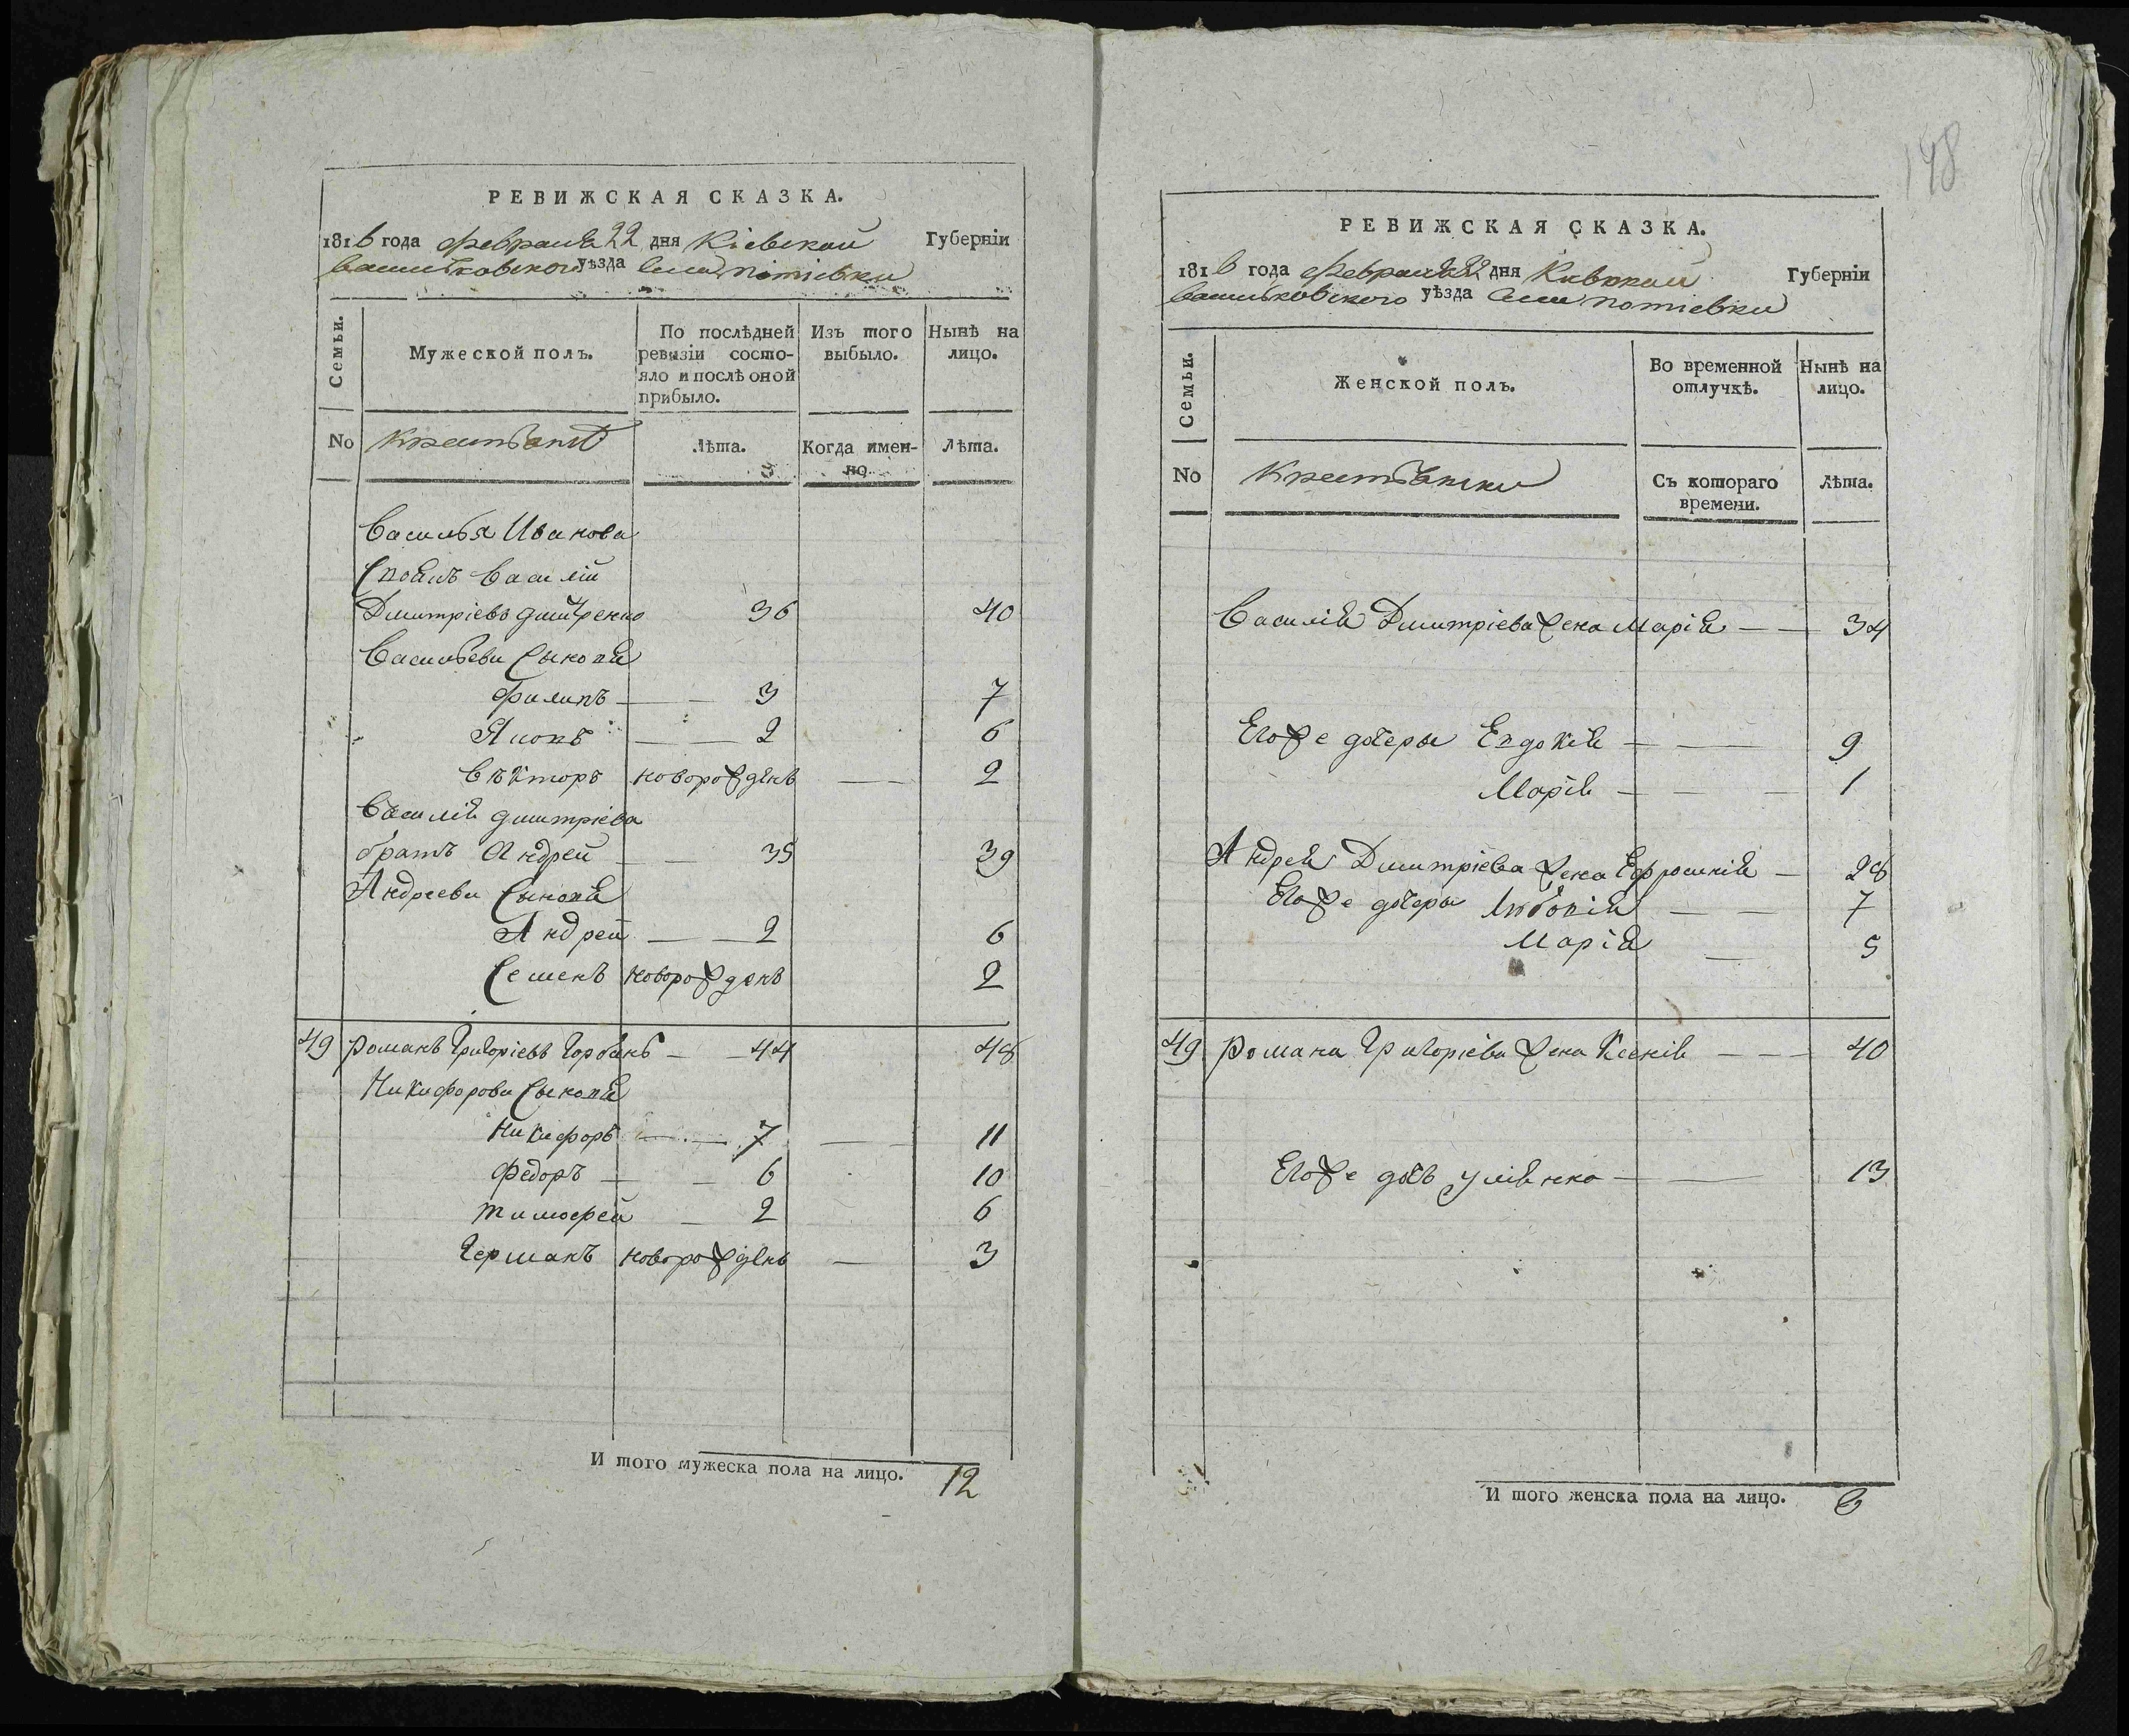 РЕВИЖСКАЯ СКАЗКА.
1816 года февраля 22 дня Кіевской Губерніи
Васильковского уѣзда Села Потіевки
Семьи.
Мужеской полъ.
По послѣдней ревизіи состояло и послѣ оной прибыло.
Изъ того выбыло.
Нынѣ на лицо.
No
Крестьянъ
Лѣта.
Когда именно
Лѣта.
Василья Иванова
Василій
Дмитріевъ Дмитренко 36 40
Васильеви Сыновя
Филипъ — — 3 7
Яковъ — — 2 6
Вѣкторъ новорожденъ — 2
Василія Дмитріева
братъ Андрей — — 35 39
Андрееви Сыновя
Андрей — — 2 6
Семенъ новорожденъ 2
49 Романъ Григоріевъ Горбань — — 44 48
Никифорови Сыновя
Никифоръ — — 7 — 11
Федоръ — — 6 10
Тимофей — 2 6
Германъ новорожденъ — 3
И того мужеска пола на лицо. 12
148
РЕВИЖСКАЯ СКАЗКА.
1816 года февраля 22 дня Кіевской Губерніи
Васильковского уѣзда Села Потіевки
Семьи.
Женской полъ.
Во временной отлучкѣ.
Нынѣ на лицо.
No
Крестьянки
Съ котораго времени.
Лѣта.
Василія Дмитріева жена Марія — — 34
Егоже дочеры Евдокія — — 9
Марія — — — 1
Андрея Дмитріева жена Ефросинія — 28
Егоже дочеры — — 7
Марія — 5
49 Романа Григоріева жена Ксенія — — — 40
Егоже дочь Уліянна — — 13
И того женска пола на лицо. 8